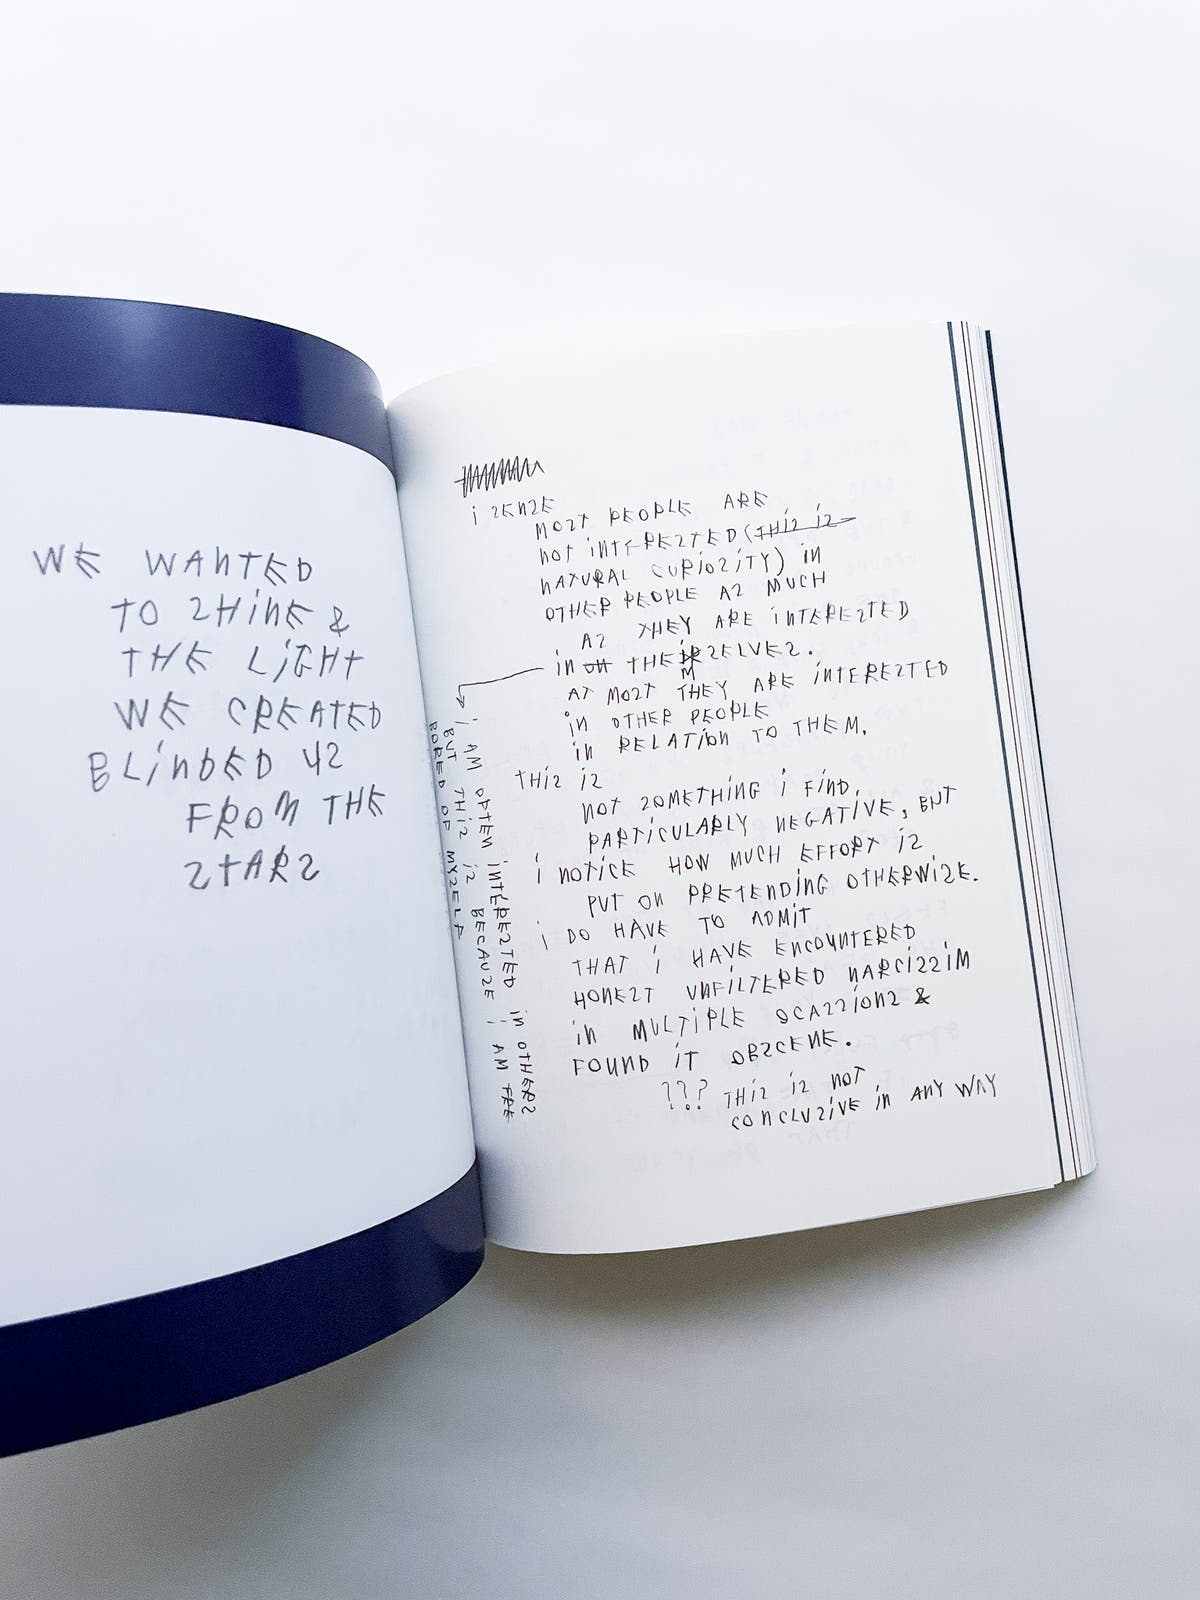 WE WANTED
TO SHiNE &
THE LiGHT
WE CREATED
BLiNDED US
FROM THE
STARS
i SENSE
MOST PEOPLE ARE
NOT iNTERESTED (THiS iS
NATURAL CURiOSiTY) iN
OTHER PEOPLE AS MUCH
AS THEY ARE iNTERESTED
iN ON THEMSELVES.
AT MOST THEY ARE iNTERESTED
iN OTHER PEOPLE
iN RELATiON TO THEM.
THiS iS
NOT SOMETHiNG i FiND
PARTiCULARLY NEGATiVE, BUT
i NOTiCE HOW MUCH EFFORT iS
PUT ON PRETENDiNG OTHERWiSE.
i DO HAVE TO ADMiT
THAT i HAVE ENCOUNTERED
HONEST UNFiLTERED NARCiSSiM
iN MULTiPLE OCASSiONS &
FOUND iT OBSCENE.
??? THiS iS NOT
CONCLUSiVE iN ANY WAY
i AM OFTEN iNTERESTED iN OTHERS
BUT THiS iS BECAUSE i AM FRE
BORED OF MYSELF